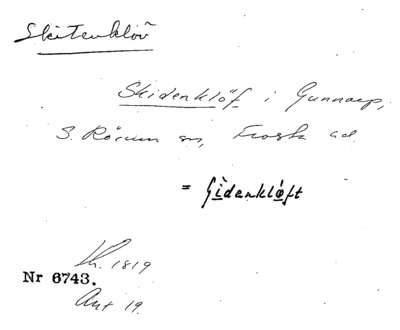 Skitenklöv
Skidenklöf i Gunnarp,
S. Rörum sn, Frosta hd
= Gìdenkløft
1819
Nr 6743.
Ant 19.